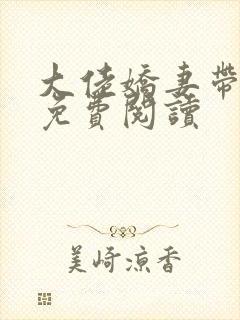 大佬嬌妻帶
免費閱讀
美崎涼香